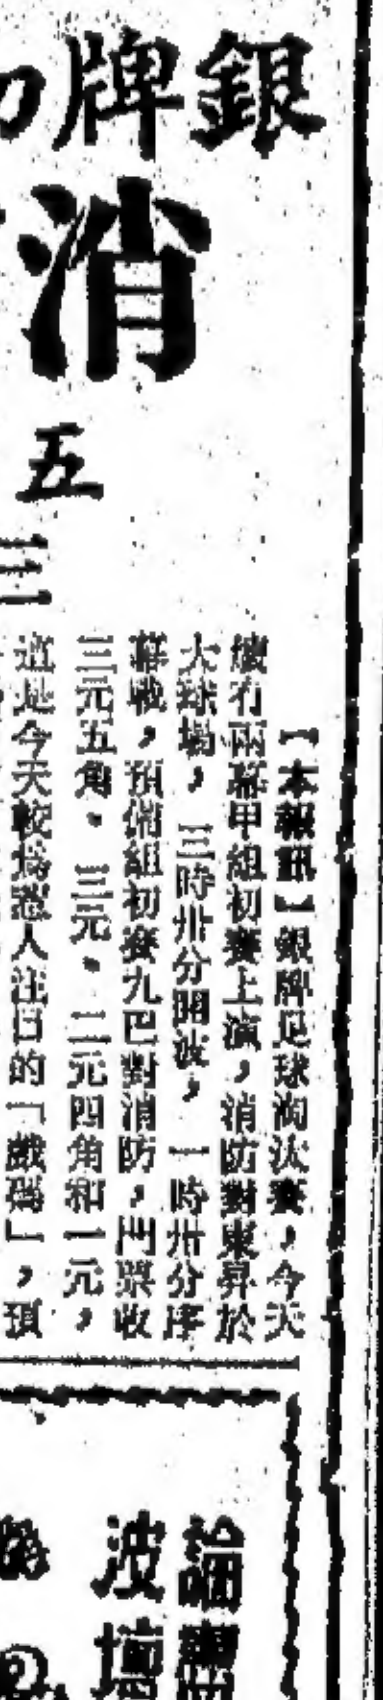 銀牌
消
五
【本報訊】銀牌足球淘汰賽，今天
續有兩幕甲組初賽上演，消防對東昇於
大球場，三時卅分開波，一時卅分序
幕戰，預備組初賽九巴對消防，門票收
三元五角．三元．二元四角和一元，
這是今天較為惹人注目的「戲碼」，預
論
波壇